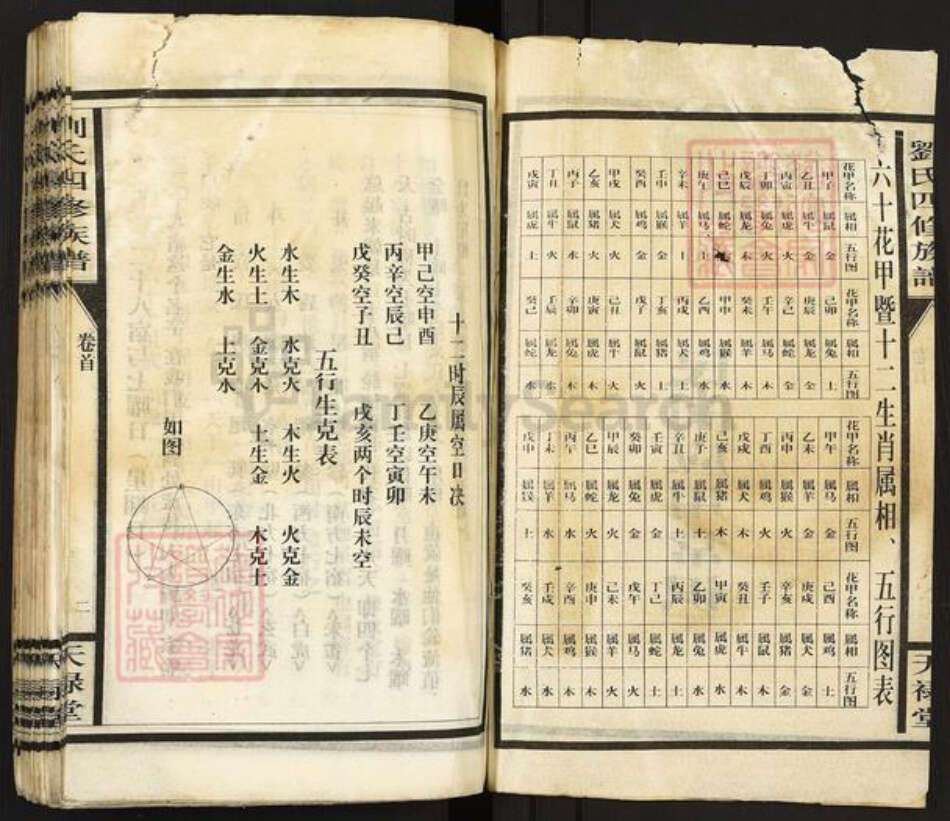 劉氏四修族譜 天禄堂
六十花甲暨十二生肖属相、五行图表
花甲名称 属相 五行图 花甲名称 属相 五行图 花甲名称 属相 五行图 花甲名称 属相 五行图
甲子 属鼠 金 己卯 属兔 土 甲午 属马 金 己酉 属鸡 土
乙丑 属牛 金 庚辰 属龙 金 乙未 属羊 金 庚戌 属犬 金
丙寅 属虎 火 辛己 属蛇 金 丙申 属猴 火 辛亥 属猪 金
丁卯 属兔 火 壬午 属马 木 丁酉 属鸡 火 壬子 属鼠 木
戊辰 属龙 木 癸未 属羊 木 戊戌 属犬 木 癸丑 属牛 木
己巳 属蛇 木 甲申 属猴 水 己亥 属猪 木 甲寅 属虎 水
庚午 属马 土 乙酉 属鸡 水 庚子 属鼠 土 乙卯 属兔 水
辛未 属羊 土 丙戌 属犬 土 辛丑 属牛 土 丙辰 属龙 土
壬申 属猴 金 丁亥 属猪 土 壬寅 属虎 金 丁己 属蛇 土
癸酉 属鸡 金 戊子 属鼠 火 癸卯 属兔 金 戊午 属马 火
甲戌 属犬 火 己丑 属牛 火 甲辰 属龙 火 己未 属羊 火
乙亥 属猪 火 庚寅 属虎 木 乙巳 属蛇 火 庚申 属猴 木
丙子 属鼠 水 辛卯 属兔 木 丙午 属马 水 辛酉 属鸡 木
丁丑 属牛 水 壬辰 属龙 水 丁未 属羊 水 壬戌 属犬 水
戊寅 属虎 土 癸己 属蛇 水 戊申 属猴 土 癸亥 属猪 水
十二时辰属空日决
甲己空申酉 乙庚空午未
丙辛空辰己 丁壬空寅卯
戊癸空子丑 戌亥两个时辰未空
五行生克表
水生木 水克火 木生火 火克金
火生土 金克木 土生金 木克土
金生水 土克水
如图
刘氏四修族谱 卷首 二 天禄堂
FamilySearch